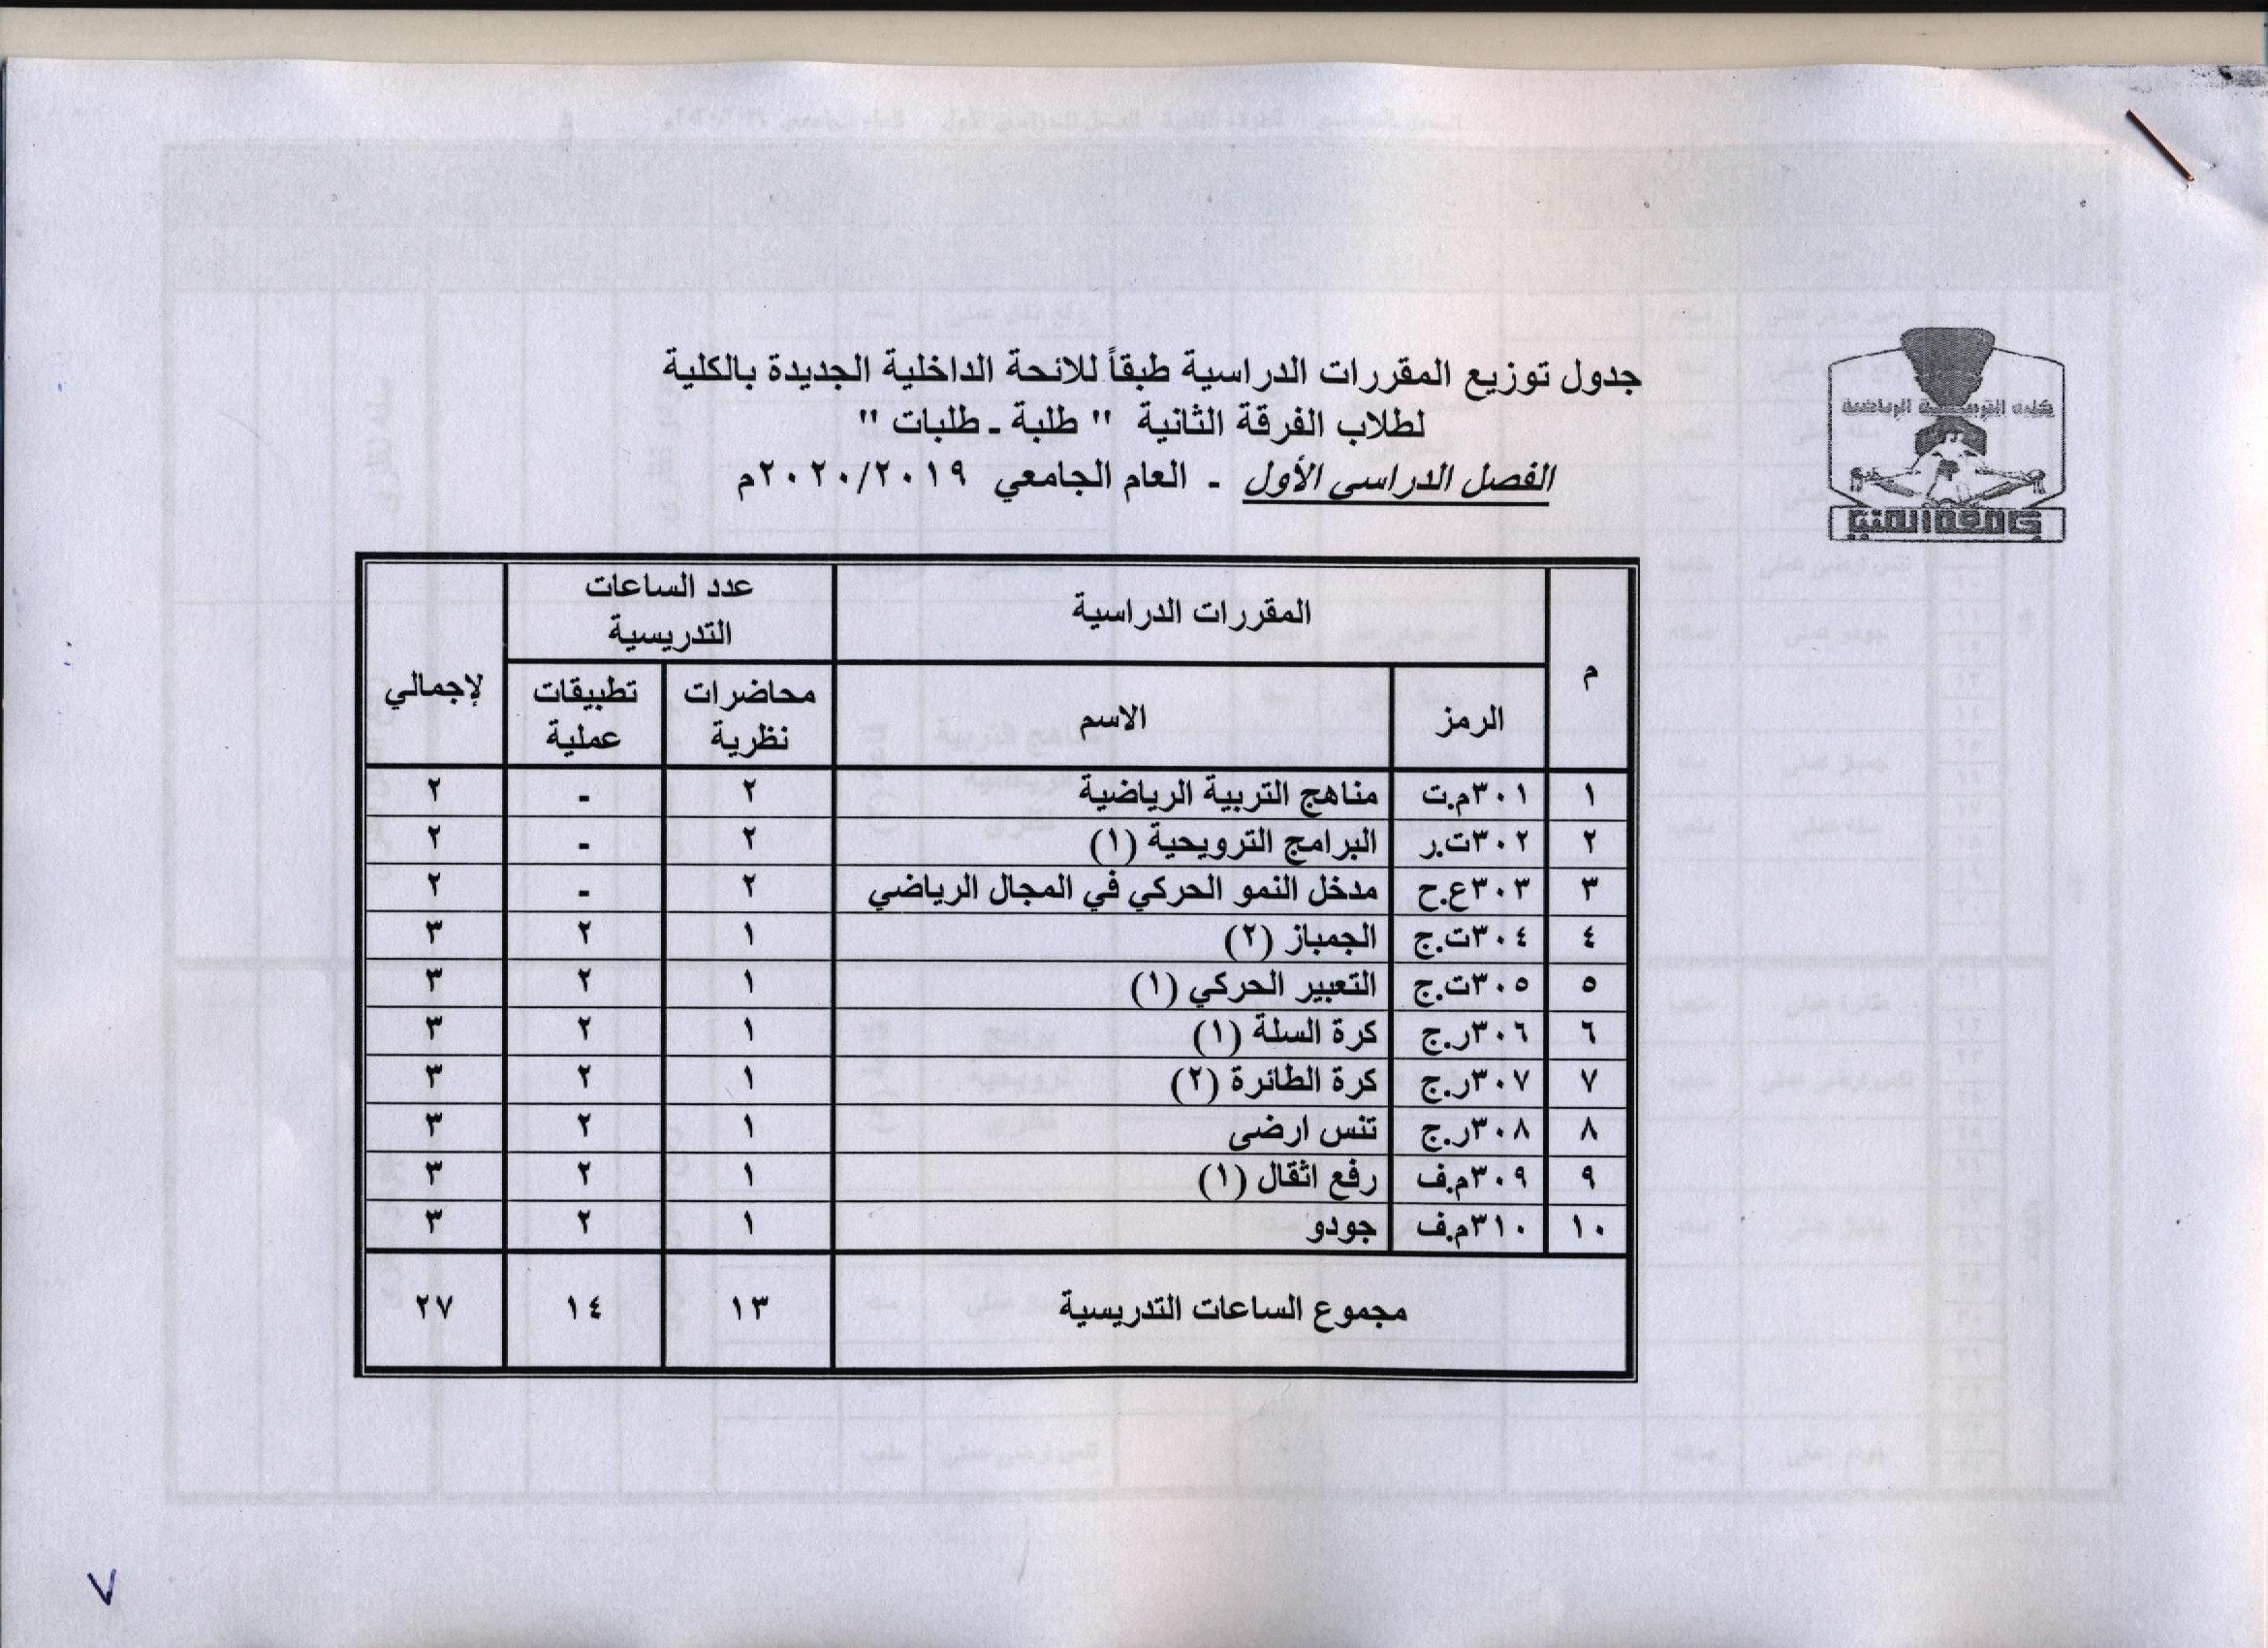 كلية التربية الرياضية
جامعة المنيا
جدول توزيع المقررات الدراسية طبقاً للائحة الداخلية الجديدة بالكلية
لطلاب الفرقة الثانية " طلبة ـ طلبات "
الفصل الدراسى الأول ـ العام الجامعي ٢٠٢٠/٢٠١٩م
م المقررات الدراسية عدد الساعات التدريسية لإجمالي
الرمز الاسم محاضرات نظرية تطبيقات عملية
١ ٣٠١م.ت مناهج التربية الرياضية ٢ - ٢
٢ ٣٠٢ت.ر البرامج الترويحية (١) ٢ - ٢
٣ ٣٠٣ع.ح مدخل النمو الحركي في المجال الرياضي ٢ - ٢
٤ ٣٠٤ت.ج الجمباز (٢) ١ ٢ ٣
٥ ٣٠٥ت.ج التعبير الحركي (١) ١ ٢ ٣
٦ ٣٠٦ر.ج كرة السلة (١) ١ ٢ ٣
٧ ٣٠٧ر.ج كرة الطائرة (٢) ١ ٢ ٣
٨ ٣٠٨ر.ج تنس ارضى ١ ٢ ٣
٩ ٣٠٩م.ف رفع اثقال (١) ١ ٢ ٣
١٠ ٣١٠م.ف جودو ١ ٢ ٣
مجموع الساعات التدريسية ١٣ ١٤ ٢٧
٧